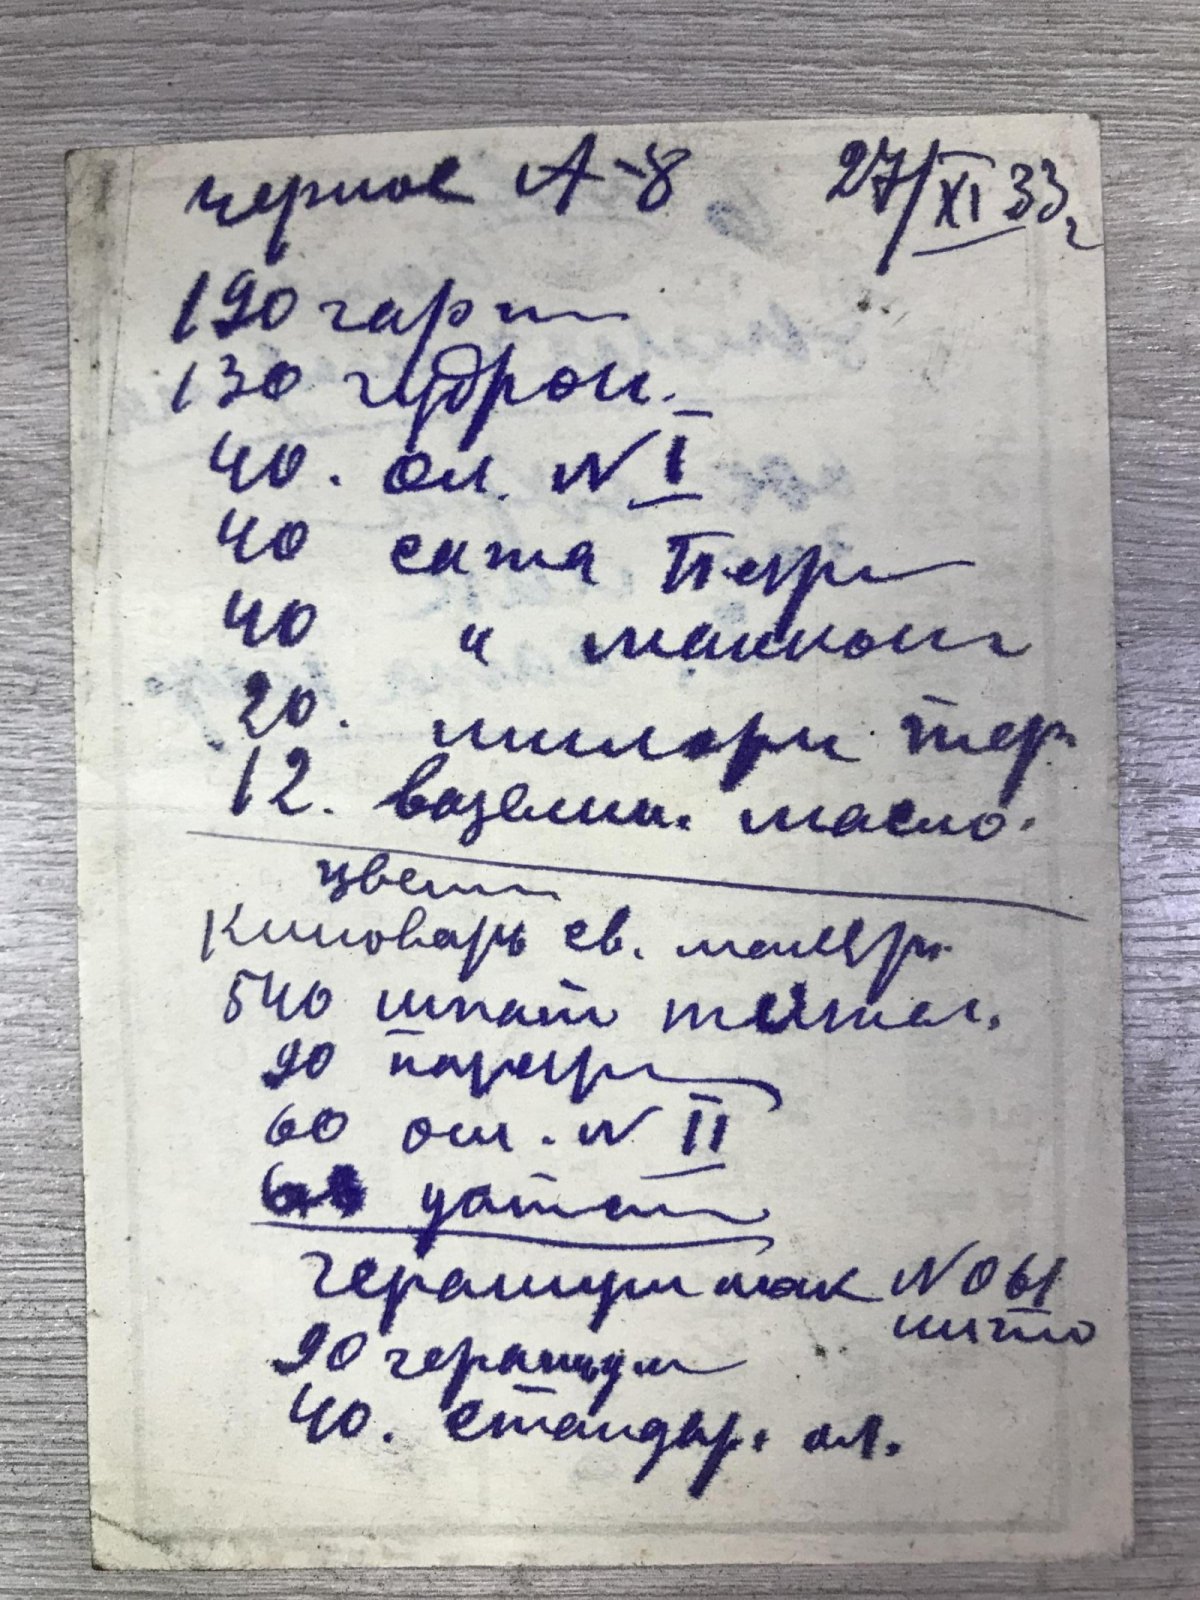 черное А-8 27/XI 33 г
190 гарт
130 гудрон.
40. ол. № I
40 сажа Петр
40 " маккони
20. милори тер.
12. вазелин. масло.
цвет
Киноварь св. матер.
540 шпат тяжел.
90
60 ол. № II
60
гераниум лак № 061
90 гераниум
40. стандар. ол.